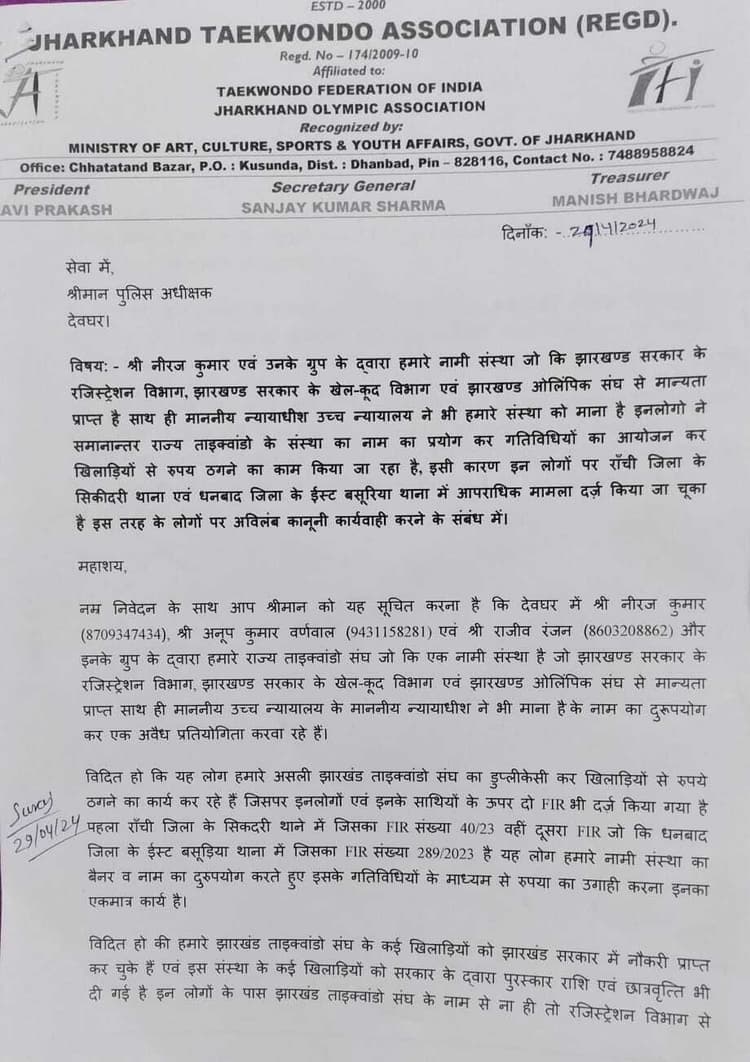 ESTD – 2000
JHARKHAND TAEKWONDO ASSOCIATION (REGD).
Regd. No – 174/2009-10
Affiliated to:
TAEKWONDO FEDERATION OF INDIA
JHARKHAND OLYMPIC ASSOCIATION
Recognized by:
MINISTRY OF ART, CULTURE, SPORTS & YOUTH AFFAIRS, GOVT. OF JHARKHAND
Office: Chhatatand Bazar, P.O. : Kusunda, Dist. : Dhanbad, Pin – 828116, Contact No. : 7488958824
President Secretary General Treasurer
AVI PRAKASH SANJAY KUMAR SHARMA MANISH BHARDWAJ
दिनाँक: - 29/4/2024
सेवा में,
श्रीमान पुलिस अधीक्षक
देवघर।
विषय: - श्री नीरज कुमार एवं उनके ग्रुप के द्वारा हमारे नामी संस्था जो कि झारखण्ड सरकार के
रजिस्ट्रेशन विभाग, झारखण्ड सरकार के खेल-कूद विभाग एवं झारखण्ड ओलिंपिक संघ से मान्यता
प्राप्त है साथ ही माननीय न्यायाधीश उच्च न्यायालय ने भी हमारे संस्था को माना है इनलोगो ने
समानान्तर राज्य ताइक्वांडो के संस्था का नाम का प्रयोग कर गतिविधियों का आयोजन कर
खिलाड़ियों से रुपय ठगने का काम किया जा रहा है, इसी कारण इन लोगों पर राँची जिला के
सिकीदरी थाना एवं धनबाद जिला के ईस्ट बसूरिया थाना में आपराधिक मामला दर्ज़ किया जा चूका
है इस तरह के लोगों पर अविलंब कानूनी कार्यवाही करने के संबंध में।
महाशय,
नम्र निवेदन के साथ आप श्रीमान को यह सूचित करना है कि देवघर में श्री नीरज कुमार
(8709347434), श्री अनूप कुमार वर्णवाल (9431158281) एवं श्री राजीव रंजन (8603208862) और
इनके ग्रुप के द्वारा हमारे राज्य ताइक्वांडो संघ जो कि एक नामी संस्था है जो झारखण्ड सरकार के
रजिस्ट्रेशन विभाग, झारखण्ड सरकार के खेल-कूद विभाग एवं झारखण्ड ओलिंपिक संघ से मान्यता
प्राप्त साथ ही माननीय उच्च न्यायालय के माननीय न्यायाधीश ने भी माना है के नाम का दुरूपयोग
कर एक अवैध प्रतियोगिता करवा रहे हैं।
विदित हो कि यह लोग हमारे असली झारखंड ताइक्वांडो संघ का डुप्लीकेसी कर खिलाड़ियों से रुपये
ठगने का कार्य कर रहे हैं जिसपर इनलोगों एवं इनके साथियों के ऊपर दो FIR भी दर्ज़ किया गया है
पहला राँची जिला के सिकदरी थाने में जिसका FIR संख्या 40/23 वहीं दूसरा FIR जो कि धनबाद
जिला के ईस्ट बसूड़िया थाना में जिसका FIR संख्या 289/2023 है यह लोग हमारे नामी संस्था का
बैनर व नाम का दुरुपयोग करते हुए इसके गतिविधियों के माध्यम से रुपया का उगाही करना इनका
एकमात्र कार्य है।
Suraj
29/04/24
विदित हो की हमारे झारखंड ताइक्वांडो संघ के कई खिलाड़ियों को झारखंड सरकार में नौकरी प्राप्त
कर चुके हैं एवं इस संस्था के कई खिलाड़ियों को सरकार के द्वारा पुरस्कार राशि एवं छात्रवृत्ति भी
दी गई है इन लोगों के पास झारखंड ताइक्वांडो संघ के नाम से ना ही तो रजिस्ट्रेशन विभाग से